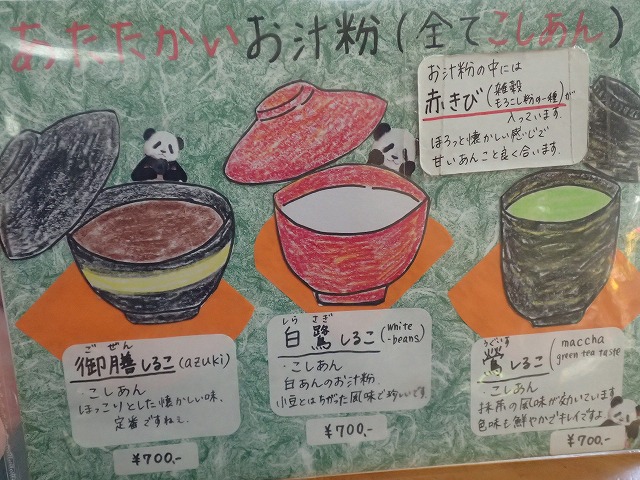 あたたかいお汁粉(全てこしあん)
お汁粉の中には
赤きび(雑穀 もろこし粉の一種)が
入っています.
ほろっと懐かしい感じで
甘いあんこと良く合います.
ごぜん
御膳しるこ(azuki)
・こしあん
ほっこりとした懐かしい味、
定番ですねミ
¥700,-
しら さぎ
白鷺しるこ(white
-beans)
・こしあん
白あんのお汁粉.
小豆とはちがった風味で珍しいです
¥700,-
うぐいす
鶯しるこ(maccha
green tea taste
・こしあん
抹茶の風味が効いています
色味も鮮やかでキレイですよ
¥700,-